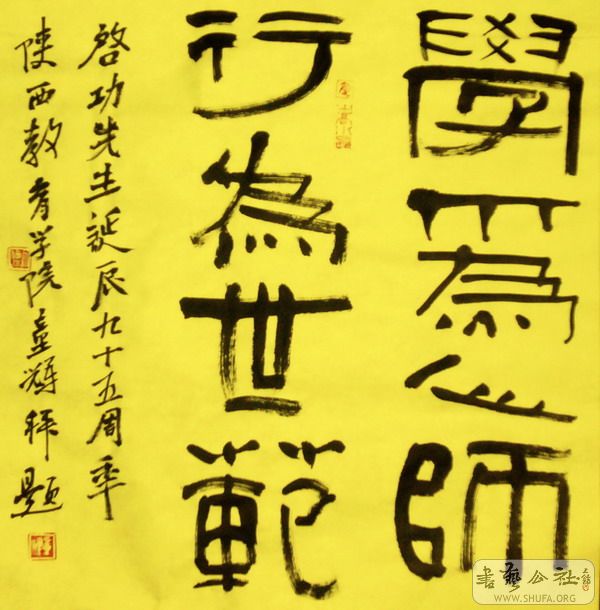 學爲人師
行為世範
啓功先生誕辰九十五周年
陕西教育学院童輝拜题
書藝公社
WWW.SHUFA.ORG